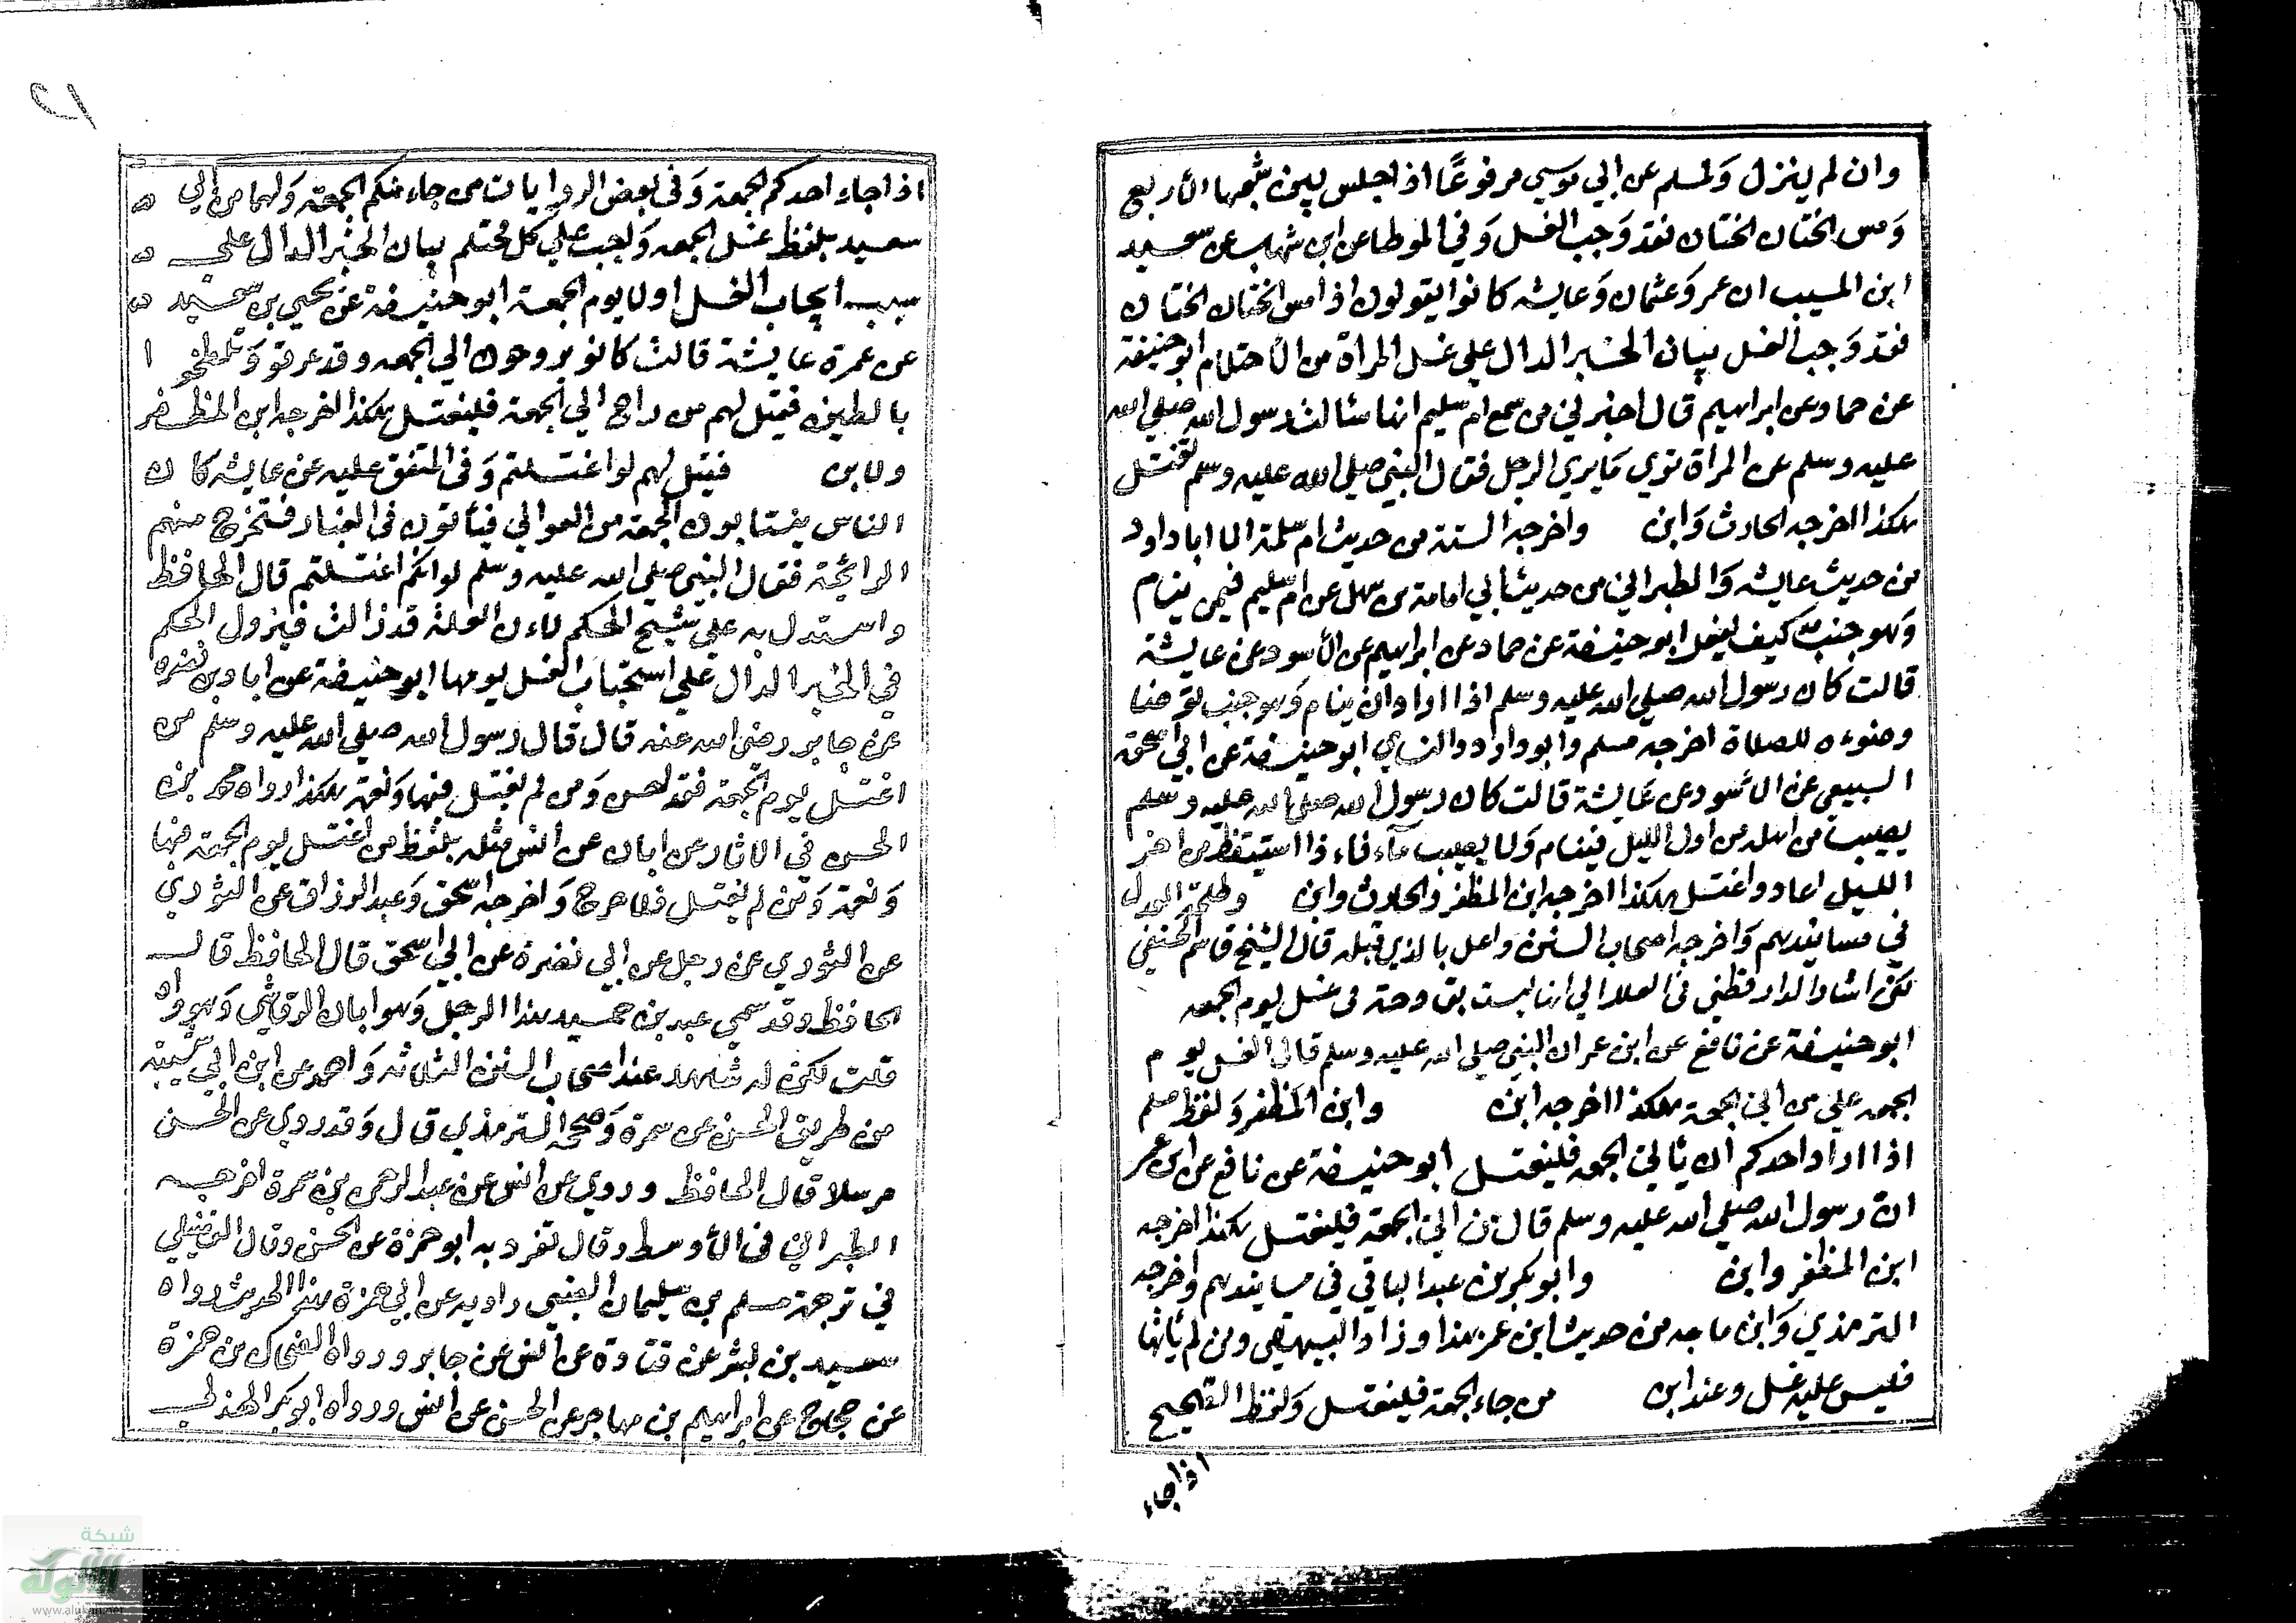 وان لم ينزل ولمسلم عن ابي موسي مرفوعًا اذا جلس بين شعبها الأربع
ومس الختان الختان فقد وجب الغسل وفي الموطا عن ابن شهاب عن سعيد
ابن المسيب ان عمر وعثمان وعايشه كانوا يقولون اذا مس الختان الختان
فقد وجب الغسل بيان الخبر الدال علي غسل المراة من الأحتلام ابو حنيفة
عن حماد عن ابراهيم قال اخبرني من سمع ام سليم انها سالت رسول الله صلي الله
عليه وسلم عن المراة تري ما يري الرجل فقال النبي صلي الله عليه وسلم تغتسل
هكذا اخرجه الحارث وابن واخرجه الستة من حديث ام سلمة الا ابا داود
من حديث عايشه والطبراني من حديث ابي امامة بن سهل عن ام سليم فيمن ينام
وهو جنب كيف يفعل ابو حنيفة عن حماد عن ابراهيم عن الأسود عن عايشة
قالت كان رسول الله صلي الله عليه وسلم اذا اراد ان ينام وهو جنب توضا
وضوءه للصلاة اخرجه مسلم وابو داود والنساي ابو حنيفة عن ابي اسحق
السبيعي عن الأسود عن عايشة قالت كان رسول الله صلي الله عليه وسلم
يصيب من اهله من اول الليل فينام ولا يصيب ماء فاءذا استيقظ من اخر
الليل اعاد واغتسل هكذا اخرجه ابن المظفر والحارث وابن وطلحة العدل
في مسانيدهم واخرجه اصحاب السنن واعل بالذي قبله قال الشيخ قاسم الحنفي
لكن اشار الدارقطني في العلل الي انها ليست بقادحة في غسل يوم الجمعه
ابو حنيفة عن نافع عن ابن عمر ان النبي صلي الله عليه وسلم قال الغسل يوم
الجمعه علي من اتي الجمعة هكذا اخرجه ابن وابن المظفر ولفظ مسلم
اذا اراد احدكم ان ياتي الجمعه فليغتسل ابو حنيفة عن نافع عن ابن عمر
ان رسول الله صلي الله عليه وسلم قال من اتي الجمعة فليغتسل هكذا اخرجه
ابن المظفر وابن وابو بكر بن عبد الباقي في مسانيدهم واخرجه
الترمذي وابن ماجه من حديث ابن عمر هذا وزاد البيهقي ومن لم ياتها
فليس عليه غسل وعند ابن من جاء الجمعة فليغتسل ولفظ الصحيح
اذا جاء
اذا جاء احدكم الجمعة وفي بعض الروايات من جاء منكم الجمعة ولهما من ابي
سعيد بلفظ غسل الجمعه واجب علي كل محتلم بيان الخبر الدال علي
سبب ايجاب الغسل اولا يوم الجمعة ابو حنيفة عن يحيي بن سعيد
عن عمرة عايشة قالت كانو يروحون الي الجمعه وقد عرقو وتلطخو ا
بالطين فقيل لهم من راح الي الجمعة فليغتسل هكذا اخرجه ابن المظفر
ولابن فقيل لهم لو اغتسلتم وفي المتفق عليه عن عايشه كان
الناس ينتابون الجمعة من العوالي فيأتون في الغبار فتخرج منهم
الرائحة فقال النبي صلي الله عليه وسلم لو انكم اغتسلتم قال الحافظ
واستدل به علي نسخ الحكم لاءن العلة قد زالت فيزول الحكم
في الخبر الدال علي استحباب الغسل يومها ابو حنيفة عن ابا نضره
عن جابر رضي الله عنه قال قال رسول الله صلي الله عليه وسلم من
اغتسل يوم الجمعة فقد احسن ومن لم يغتسل فبها ونعمة هكذا رواه محمد بن
الحسن في الاثار عن ابان عن انس مثله بلفظ من اغتسل يوم الجمعة فبها
ونعمة ومن لم يغتسل فلا حرج واخرجه اسحق وعبد الرزاق عن الثوري
عن الثوري عن رجل عن ابي نضرة عن ابي اسحق قال الحافظ قال
الحافظ وقد سمي عبد بن حميد هذا الرجل وهو ابان الرقاشي وهو واه
قلت لكن له شاهد عند اصحاب السنن الثلاثه واحمد عن ابن ابي شيبه
من طريق الحسن عن سمرة وصححه الترمذي قال وقد روي عن الحسن
مرسلا قال الحافظ وروي عن انس عن عبد الرحمن بن سمرة اخرجه
الطبراني في الأوسط وقال تفرد به ابو حمزة عن الحسن وقال العقيلي
في ترجمة مسلم بن سليمان الضبي راويه عن ابي حمزة هذا الحديث رواه
سعيد بن بشر عن قتادة عن انس عن جابر ورواه الضحاك بن حمزة
عن حجاج عن ابراهيم بن مهاجر عن الحسن عن انس ورواه ابو بكر الهذلي
شبكة
الألوكة
www.alukah.net